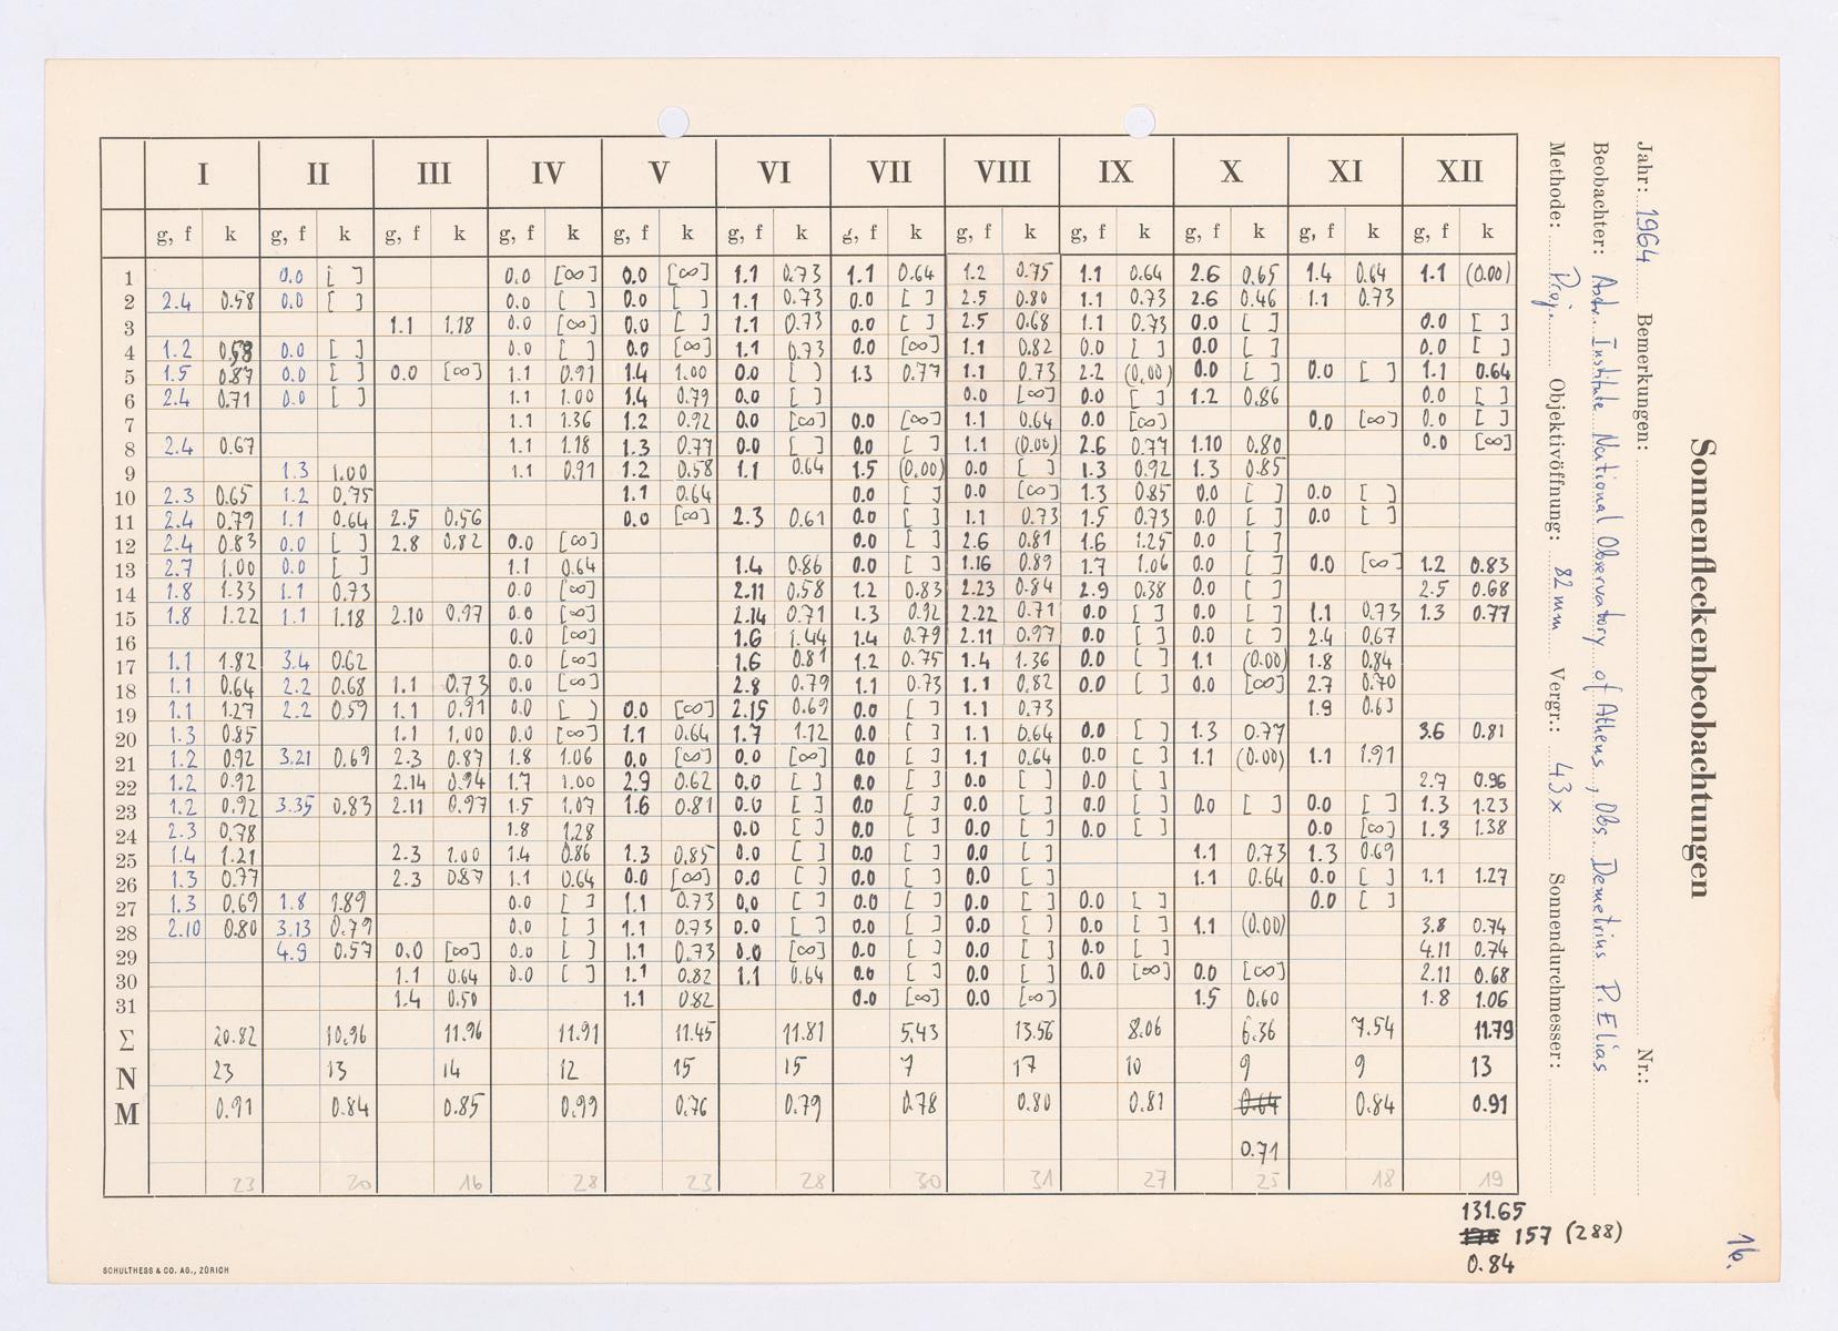 Sonnenfleckenbeobachtungen
Jahr: 1964 Bemerkungen: Nr.:
Beobachter: Astr. Institute National Observatory of Athens, Obs. Demetrius P. Elias
Methode: Proj. Objektivöffnung: 82 mm Vergr.: 43x Sonnendurchmesser:
16.
I II III IV V VI VII VIII IX X XI XII
g, f k g, f k g, f k g, f k g, f k g, f k g, f k g, f k g, f k g, f k g, f k g, f k
1 0.0 [ ] 0.0 [∞] 0.0 [∞] 1.1 0.73 1.1 0.64 1.2 0.75 1.1 0.64 2.6 0.65 1.4 0.64 1.1 (0.00)
2 2.4 0.58 0.0 [ ] 0.0 [ ] 0.0 [ ] 1.1 0.73 0.0 [ ] 2.5 0.80 1.1 0.73 2.6 0.46 1.1 0.73
3 1.1 1.18 0.0 [∞] 0.0 [ ] 1.1 0.73 0.0 [ ] 2.5 0.68 1.1 0.73 0.0 [ ] 0.0 [ ]
4 1.2 0.58 0.0 [ ] 0.0 [ ] 0.0 [∞] 1.1 0.73 0.0 [∞] 1.1 0.82 0.0 [ ] 0.0 [ ] 0.0 [ ]
5 1.5 0.87 0.0 [ ] 0.0 [∞] 1.1 0.91 1.4 1.00 0.0 [ ] 1.3 0.77 1.1 0.73 2.2 (0.00) 0.0 [ ] 0.0 [ ] 1.1 0.64
6 2.4 0.71 0.0 [ ] 1.1 1.00 1.4 0.79 0.0 [ ] 0.0 [∞] 0.0 [ ] 1.2 0.86 0.0 [ ]
7 1.1 1.36 1.2 0.92 0.0 [∞] 0.0 [∞] 1.1 0.64 0.0 [∞] 0.0 [∞] 0.0 [ ]
8 2.4 0.67 1.1 1.18 1.3 0.77 0.0 [ ] 0.0 [ ] 1.1 (0.00) 2.6 0.77 1.10 0.80 0.0 [∞]
9 1.3 1.00 1.1 0.91 1.2 0.58 1.1 0.64 1.5 (0.00) 0.0 [ ] 1.3 0.92 1.3 0.85
10 2.3 0.65 1.2 0.75 1.1 0.64 0.0 [ ] 0.0 [∞] 1.3 0.85 0.0 [ ] 0.0 [ ]
11 2.4 0.79 1.1 0.64 2.5 0.56 0.0 [∞] 2.3 0.61 0.0 [ ] 1.1 0.73 1.5 0.73 0.0 [ ] 0.0 [ ]
12 2.4 0.83 0.0 [ ] 2.8 0.82 0.0 [∞] 0.0 [ ] 2.6 0.81 1.6 1.25 0.0 [ ]
13 2.7 1.00 0.0 [ ] 1.1 0.64 1.4 0.86 0.0 [ ] 1.16 0.89 1.7 1.06 0.0 [ ] 0.0 [∞] 1.2 0.83
14 1.8 1.33 1.1 0.73 0.0 [∞] 2.11 0.58 1.2 0.83 2.23 0.84 2.9 0.38 0.0 [ ] 2.5 0.68
15 1.8 1.22 1.1 1.18 2.10 0.97 0.0 [∞] 2.14 0.71 1.3 0.92 2.22 0.71 0.0 [ ] 0.0 [ ] 1.1 0.73 1.3 0.77
16 0.0 [∞] 1.6 1.44 1.4 0.79 2.11 0.97 0.0 [ ] 0.0 [ ] 2.4 0.67
17 1.1 1.82 3.4 0.62 0.0 [∞] 1.6 0.81 1.2 0.75 1.4 1.36 0.0 [ ] 1.1 (0.00) 1.8 0.84
18 1.1 0.64 2.2 0.68 1.1 0.73 0.0 [∞] 2.8 0.79 1.1 0.73 1.1 0.82 0.0 [ ] 0.0 [∞] 2.7 0.70
19 1.1 1.27 2.2 0.59 1.1 0.91 0.0 [ ) 0.0 [∞] 2.15 0.69 0.0 [ ] 1.1 0.73 1.9 0.63
20 1.3 0.85 1.1 1.00 0.0 [∞] 1.1 0.64 1.7 1.12 0.0 [ ] 1.1 0.64 0.0 [ ] 1.3 0.77 3.6 0.81
21 1.2 0.92 3.21 0.69 2.3 0.87 1.8 1.06 0.0 [∞] 0.0 [∞] 0.0 [ ] 1.1 0.64 0.0 [ ] 1.1 (0.00) 1.1 1.91
22 1.2 0.92 2.14 0.94 1.7 1.00 2.9 0.62 0.0 [ ] 0.0 [ ] 0.0 [ ] 0.0 [ ] 2.7 0.96
23 1.2 0.92 3.35 0.83 2.11 0.97 1.5 1.07 1.6 0.81 0.0 [ ] 0.0 [ ] 0.0 [ ] 0.0 [ ] 0.0 [ ] 0.0 [ ] 1.3 1.23
24 2.3 0.78 1.8 1.28 0.0 [ ] 0.0 [ ] 0.0 [ ] 0.0 [ ] 0.0 [∞] 1.3 1.38
25 1.4 1.21 2.3 1.00 1.4 0.86 1.3 0.85 0.0 [ ] 0.0 [ ] 0.0 [ ] 1.1 0.73 1.3 0.69
26 1.3 0.77 2.3 0.87 1.1 0.64 0.0 [∞] 0.0 [ ] 0.0 [ ] 0.0 [ ] 1.1 0.64 0.0 [ ] 1.1 1.27
27 1.3 0.69 1.8 1.89 0.0 [ ] 1.1 0.73 0.0 [ ] 0.0 [ ] 0.0 [ ] 0.0 [ ] 0.0 [ ]
28 2.10 0.80 3.13 0.79 0.0 [ ] 1.1 0.73 0.0 [ ] 0.0 [ ] 0.0 [ ] 0.0 [ ] 1.1 (0.00) 3.8 0.74
29 4.9 0.57 0.0 [∞] 0.0 [ ] 1.1 0.73 0.0 [∞] 0.0 [ ] 0.0 [ ] 0.0 [ ] 4.11 0.74
30 1.1 0.64 0.0 [ ] 1.1 0.82 1.1 0.64 0.0 [ ] 0.0 [ ] 0.0 [∞] 0.0 [∞] 2.11 0.68
31 1.4 0.50 1.1 0.82 0.0 [∞] 0.0 [∞] 1.5 0.60 1.8 1.06
Σ 20.82 10.96 11.96 11.91 11.45 11.81 5.43 13.56 8.06 6.36 7.54 11.79
N 23 13 14 12 15 15 7 17 10 9 9 13
M 0.91 0.84 0.85 0.99 0.76 0.79 0.78 0.80 0.81 0.64 0.84 0.91
0.71
23 20 16 28 23 28 30 31 27 25 18 19
131.65
157 (288)
0.84
SCHULTHESS & CO. AG., ZÜRICH